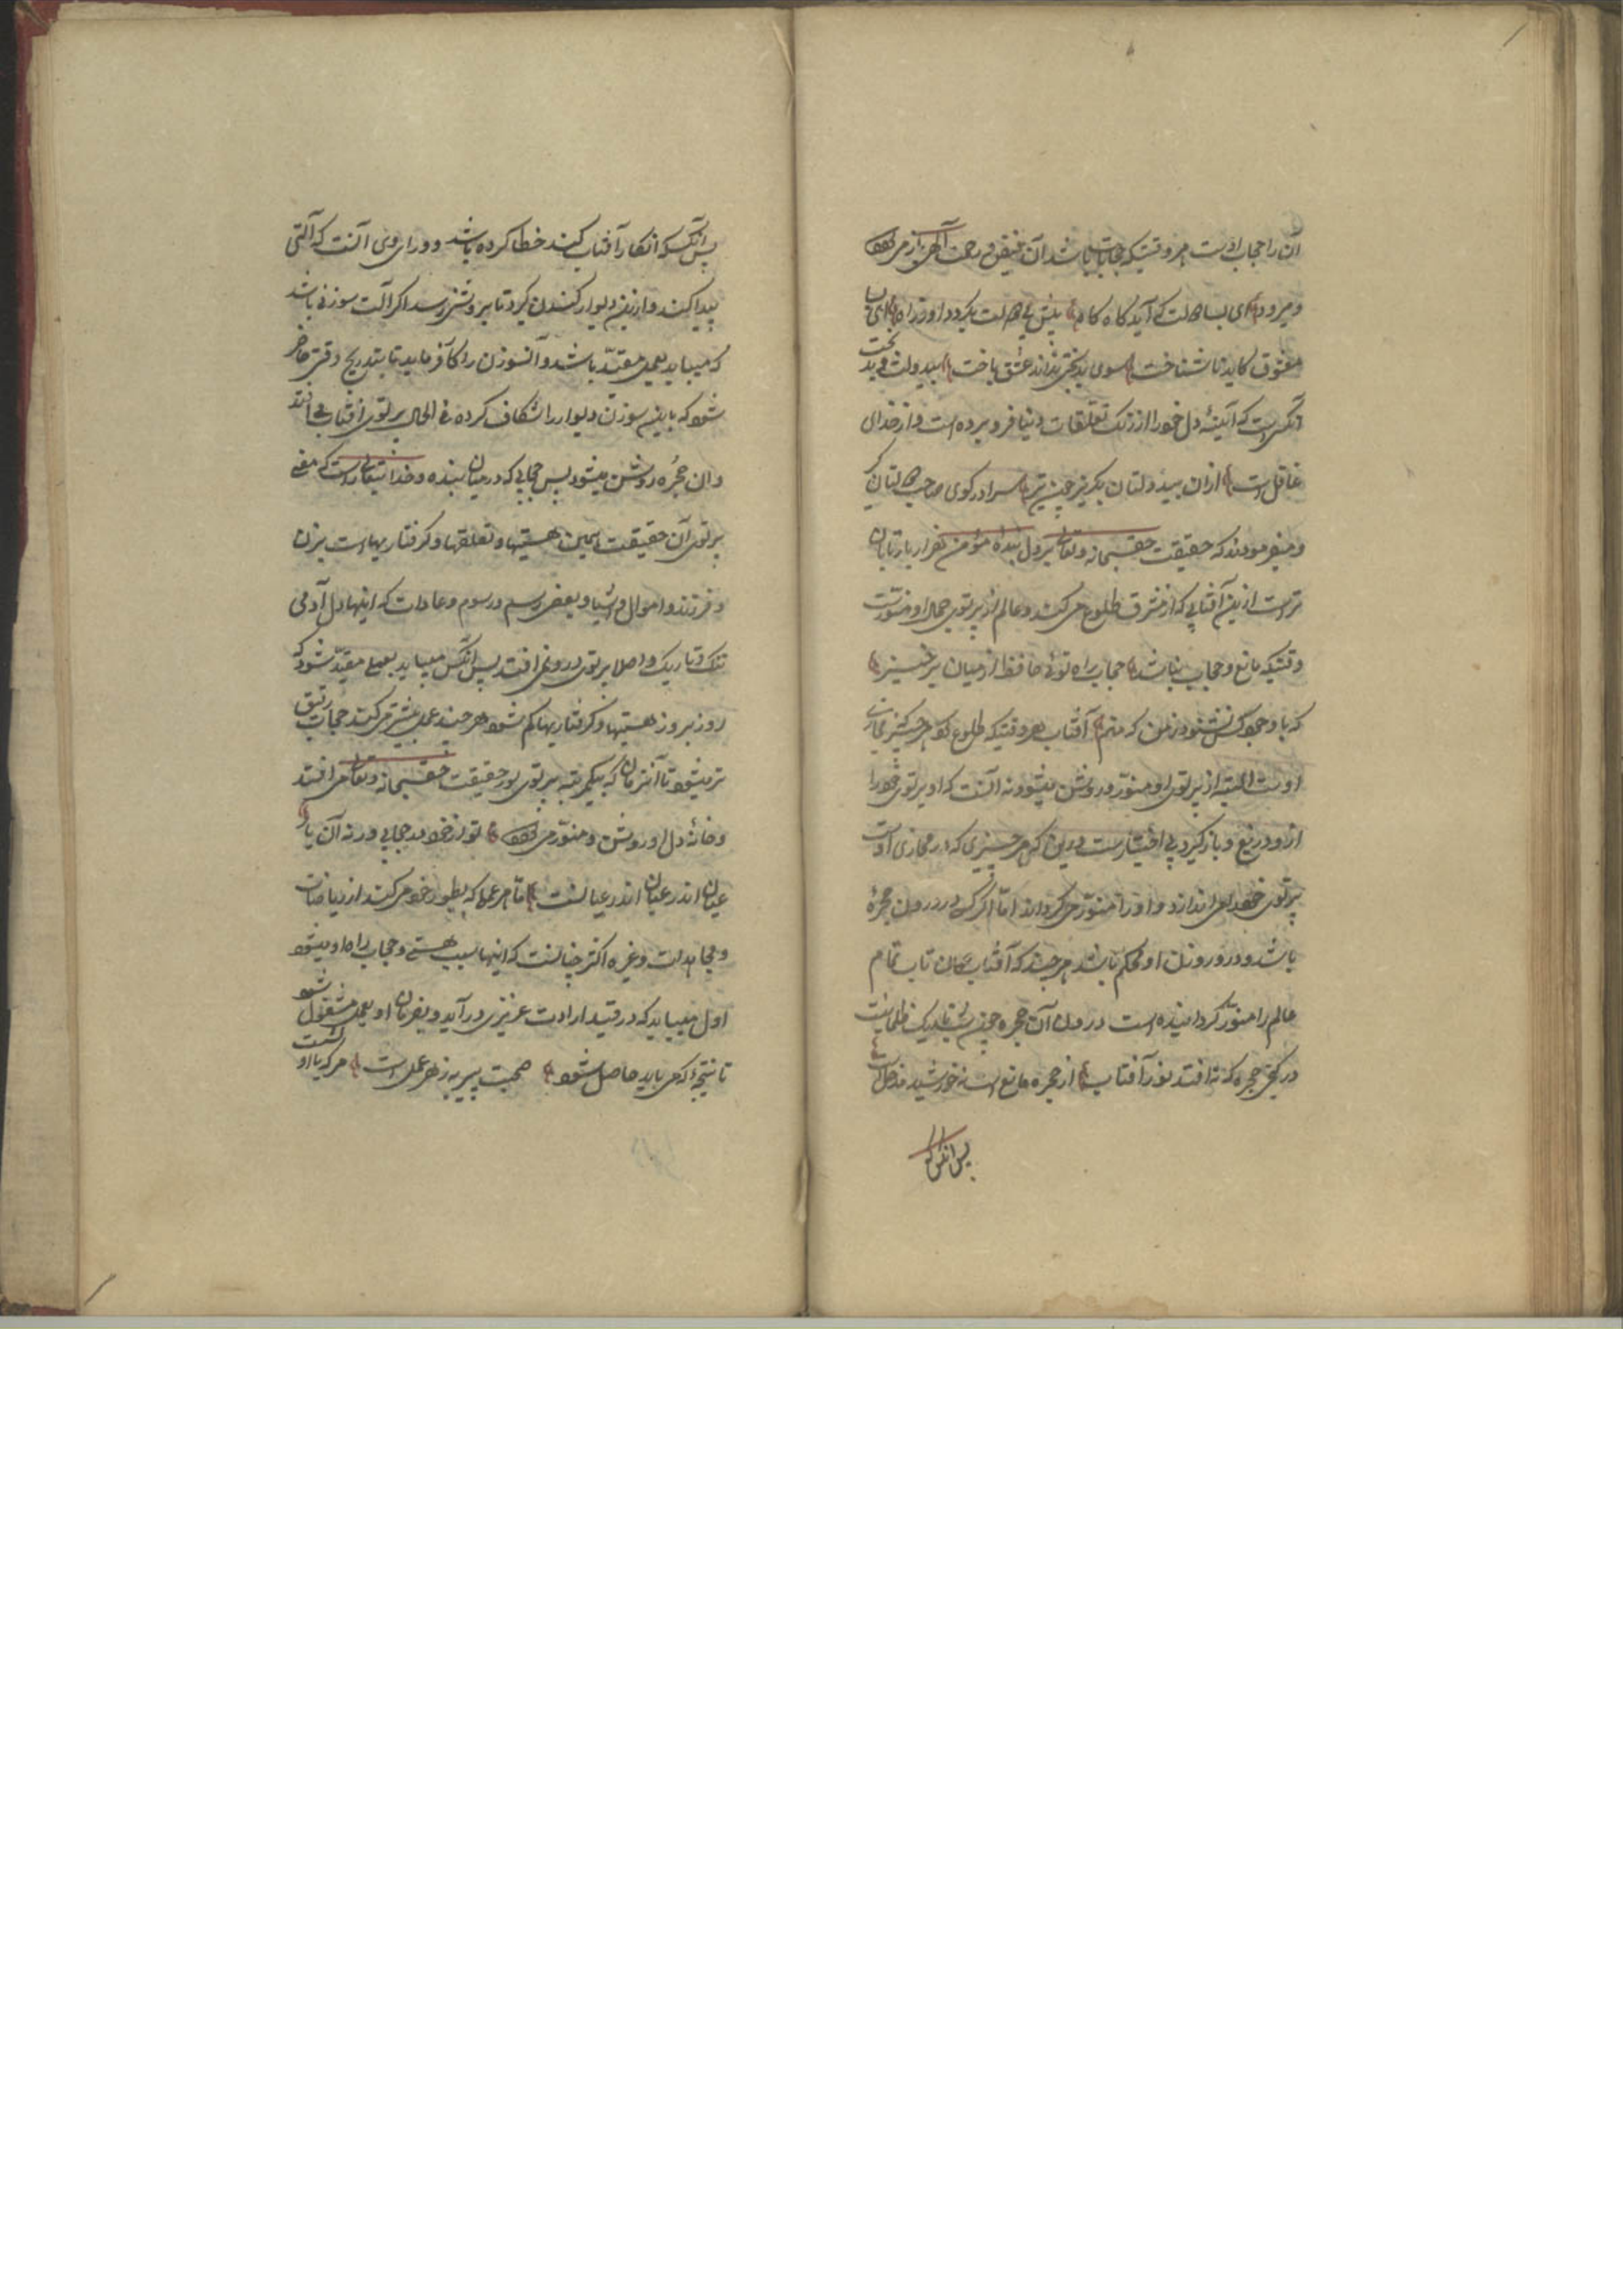 ان را حجاب اوست هر وقتیکه حجاب باشد آن فیض و رحمت الهی باز می
و میرود ای بسا دولت که آید گاه گاه پیش بی دولت بگردد او ز راه ای بسا
معشوق کاید ناشناخت سوی بدبختی نداند عشق باخت بیدولت و بدبخت
آنکس است که آئینهٔ دل خود را از زنگ تعلقات دنیا فرو برده است و از خدای
غافل است ازان بیدولتان بگریز چون تیر سرا در کوی صاحب دولتان گیر
و میفرمودند که حقیقت حق سبحانه و تعالی بر دل بندهٔ مؤمن هزار بار تابان
تر است ازین آفتابی که از مشرق طلوع می کند و عالم از پرتوی جمال او منورست
وقتیکه مانع و حجاب نباشد حجاب راه توئی حافظ از میان برخیز
که با وجود کس نشنود ز من که منم آفتاب هر وقتیکه طلوع کند هر چیزیکه
اوست البته از پرتوی او منور و روشن میشود نه آنست که او پرتوی خود را
ازو دریغ و باز گیرد بی اختیارست درین که هر چیزی که در محاذی اوست
پرتوی خود می اندازد و او را منور می گرداند اما اگر کسی در درون حجرهٔ
باشد و در و روزن او محکم باشد هر چند که آفتاب تمام
عالم را منور گردانیده است درون آن حجره چون شب تاریک ظلمانیست
در کنج حجره که نه افتد نور آفتاب از حجره مانع است نه خورشید
پس آنکس که
پس آنکس که انکار آفتاب کند خطا کرده باشد و دوای وی آنست که آلتی
پیدا کند و ازین دیوار کندن گیرد تا بروشنی رسد اگر آلت سوزنی باشد
که میباید بعمل مقید باشد و آن سوزن را کار فرماید تا بتدریج وقتی حاضر
شود که باین سوزن دیوار را شکاف کرده فی الحال پرتوی آفتاب می افتد
و ان حجره روشن میشود پس حجابی که در میان بنده و خدا تعالی است که مانع
پرتوی آن حقیقت همین هستیها و تعلقها و گرفتاریهاست بزن
و فرزند و اموال و اشیا و بعضی رسم و رسوم و عادات که اینها دل آدمی
تنگ و تاریک و اصلا پرتوی درو نمی افتد پس آنکس میباید بعملی مقید شود که
روز بروز هستیها و گرفتاریها کم شود هر چند عمل بیشتر می کند حجاب رقیق
تر میشود تا آنزمان که بیکمرتبه پرتوی نور حقیقت حق سبحانه و تعالی می افتد
و خانهٔ دل او روشن و منور می تو ز خود در حجابی ورنه آن یار
عیان اندر عیان اندر عیانست اما هر عمل که بطور خود می کند از ریاضات
و مجاهدات و غیره اکثر چنانست که اینها سبب هستی و حجاب راه او میشود
اول میباید که در قید ارادت عزیزی در آید و بفرمان او بعمل مشغول شود
تا نتیجهٔ که می باید حاصل شود صحبت پیر به ز هر عمل است هر که با او